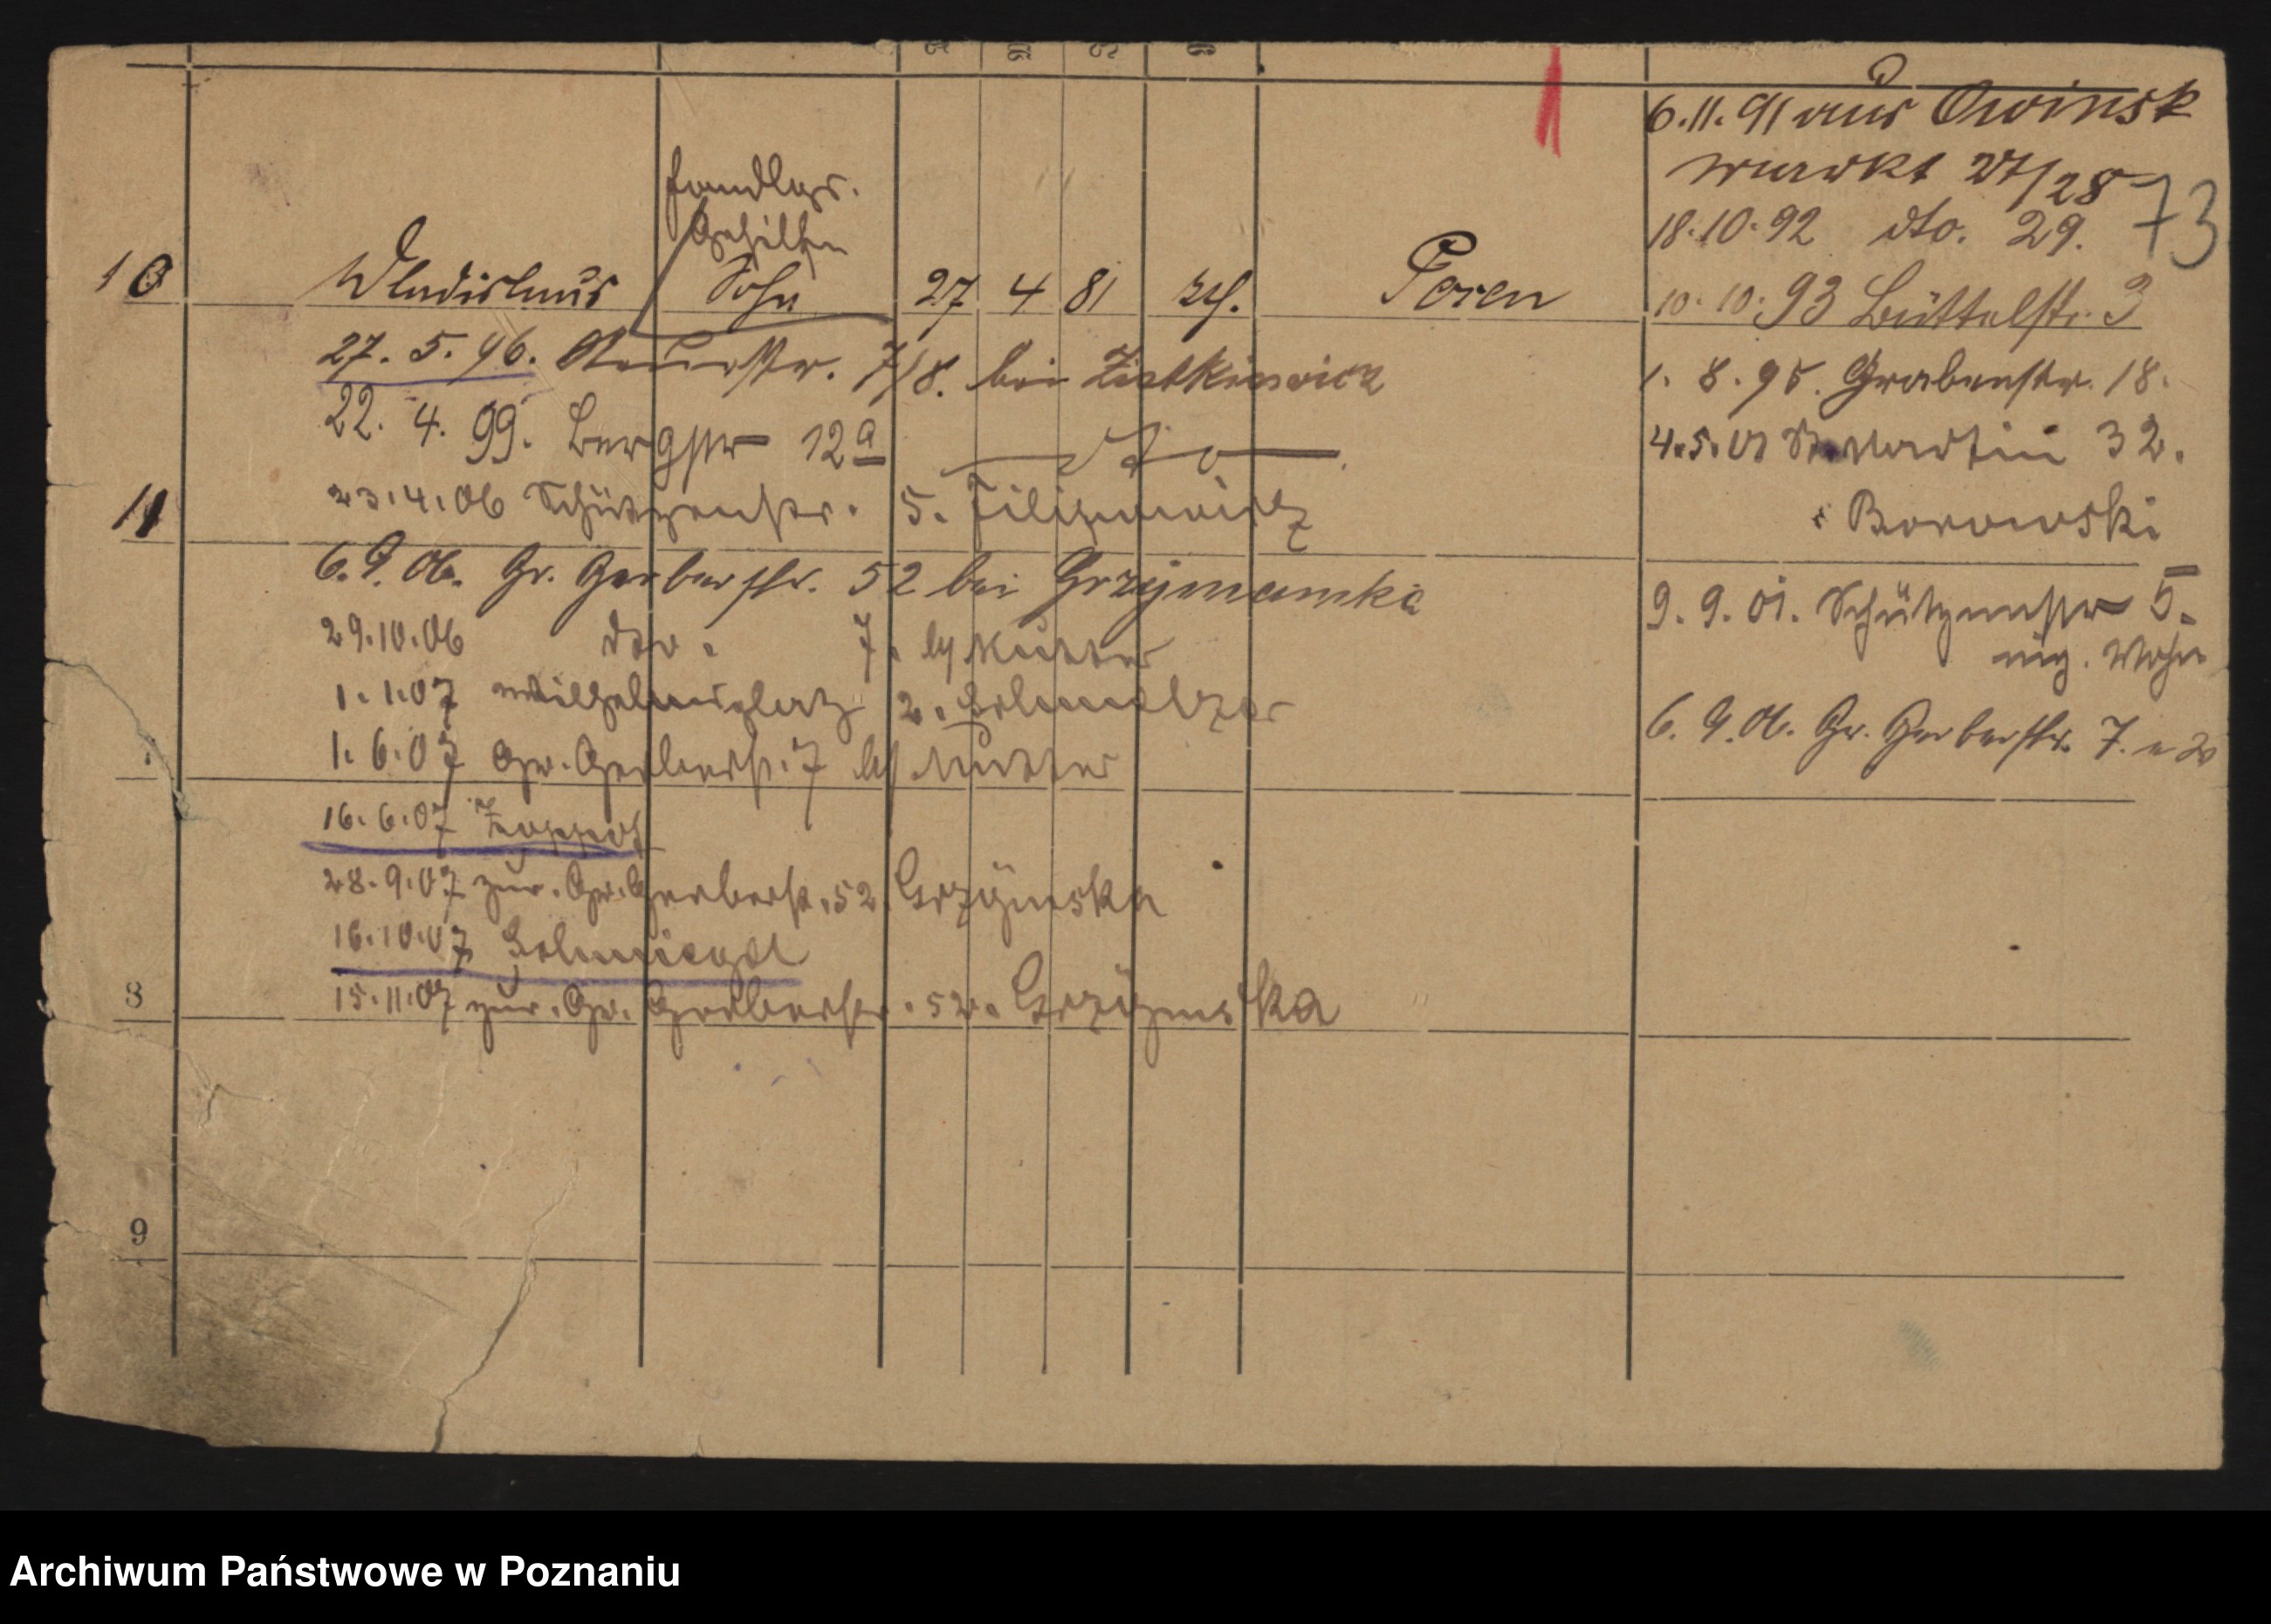 6.11.91 aus Owinsk
markt 27/28
73
18.10.92 dto. 29.
Handlgs.
Gehilfe
10 Wladislaus Sohn 27 4 81 kth. Posen
10.10.93 Büttelstr. 3
27.5.96. 7/8. bei Ziatkiewicz
1.8.95. Grabenstr. 18.
22.4.99. Bergstr 12a dto
4.5.01 St. Martin 32.
Borowski
11
23.4.06 Schützenstr. 5. Filipowicz
6.9.06. Gr. Gerberstr. 52 bei
9.9.01. Schützenstr 5.
eig. Wohn
29.10.06 dto. 7. b/ Mutter
1.1.07 Wilhelmsplatz 2.
6.9.06. Gr. Gerberstr. 7.
1.6.07 Gr. Gerberstr. 7 b/ Mutter
16.6.07 Zoppot
28.9.07 zur. Gr. Gerberstr. 52 Grzymska
16.10.07 Schmiegel
8
15.11.07 zur. Gr. Gerberstr. 52. Grzymska
9
Archiwum Państwowe w Poznaniu